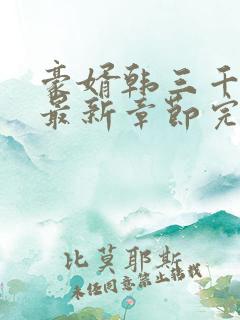 豪婿韩三千
最新章节完
比莫耶斯
未经同意禁止转载